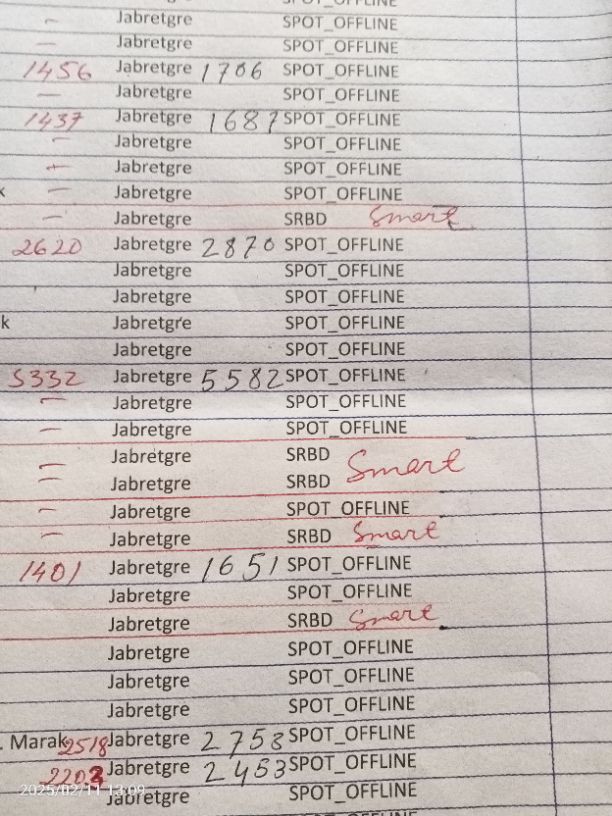 Jabretgre SPOT_OFFLINE
Jabretgre SPOT_OFFLINE
1456 Jabretgre 1706 SPOT_OFFLINE
Jabretgre SPOT_OFFLINE
1437 Jabretgre 1687 SPOT_OFFLINE
Jabretgre SPOT_OFFLINE
Jabretgre SPOT_OFFLINE
k Jabretgre SPOT_OFFLINE
Jabretgre SRBD Smart
2620 Jabretgre 2870 SPOT_OFFLINE
Jabretgre SPOT_OFFLINE
Jabretgre SPOT_OFFLINE
k Jabretgre SPOT_OFFLINE
Jabretgre SPOT_OFFLINE
5332 Jabretgre 5582 SPOT_OFFLINE
Jabretgre SPOT_OFFLINE
Jabretgre SPOT_OFFLINE
Jabretgre SRBD Smart
Jabretgre SRBD
Jabretgre SPOT_OFFLINE
Jabretgre SRBD Smart
1401 Jabretgre 1651 SPOT_OFFLINE
Jabretgre SPOT_OFFLINE
Jabretgre SRBD Smart
Jabretgre SPOT_OFFLINE
Jabretgre SPOT_OFFLINE
Jabretgre SPOT_OFFLINE
. Marak 2518 Jabretgre 2758 SPOT_OFFLINE
2203 Jabretgre 2453 SPOT_OFFLINE
Jabretgre SPOT_OFFLINE
2025/02/11 13:09